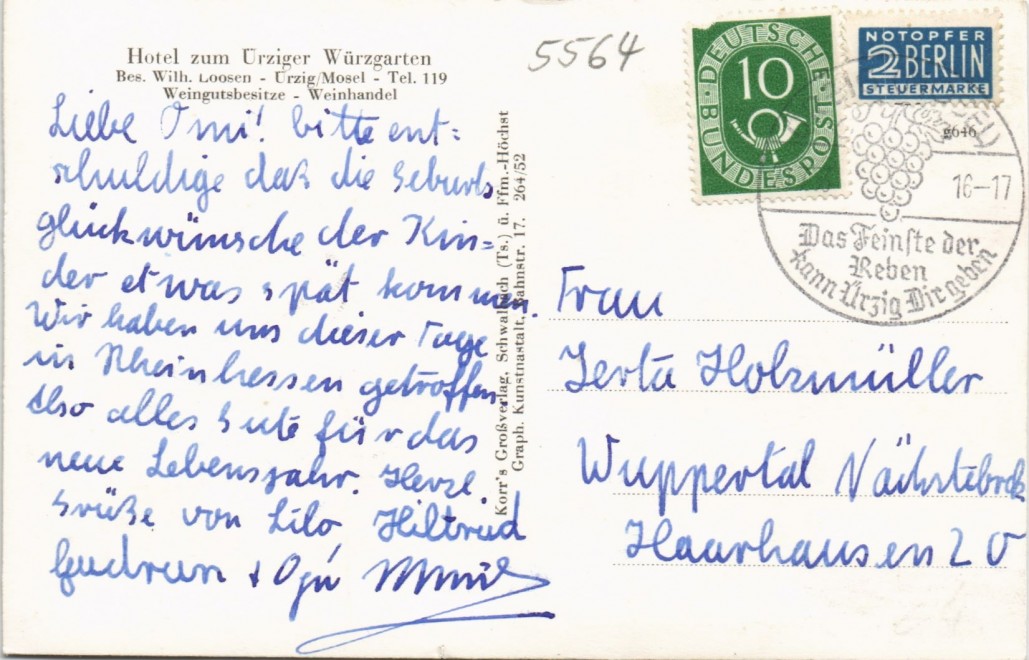 Hotel zum Ürziger Würzgarten
Bes. Wilh. Loosen - Ürzig/Mosel - Tel. 119
Weingutsbesitze - Weinhandel
5564
Liebe Omi! bitte ent=
schuldige daß die Geburts
glückwünsche der Kin=
der etwas spät kommen.
Wir haben uns dieser Tage
in Rheinhessen getroffen.
Also alles Gute für das
neue Lebensjahr. Herzl.
Grüße von Lilo, Hiltrud
Gudrun +
Korr's Großverlag, Schwalbach (Ts.) ü. Ffm.-Höchst
Graph. Kunstnastalt, Bahnstr. 17. 264/52
DEUTSCHE BUNDESPOST
10
NOTOPFER
2 BERLIN
STEUERMARKE
g646
16-17
Das Feinste der
Reben
kann Ürzig Dir geben
Frau
Gerta Holzmüller
Wuppertal Vächstebrck
Haarhausen 20